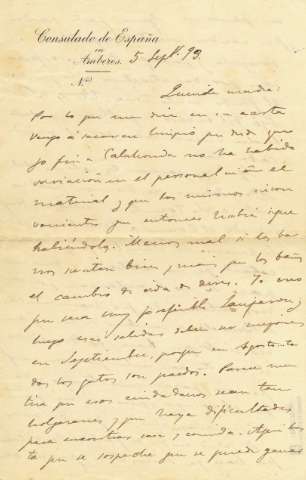 Consulado de España
en
Amberes. 5 Sepbre 93.
N.º
Querida mamá:
Por lo que me dice en su carta
vengo á sacar en limpio que desde que
yo fuí a Calahonda no ha habido
variación en el personal ni en el
material y que los mismos incon
venientes que entonces había sigue
habiéndolos. Menos mal si los ba
ños sientan bien, y más que los baños
el cambio de vida de aires. Yo creo
que sería muy preferible Lanjarón y
luego esas salidas deben ser mejores
en Septiembre, porque en Agosto to
dos los gatos son pardos. Parece men
tira que esos ciudadanos sean tan
holgazanes y que haya dificultades
para encontrar casa y comida. Aquí bas
ta que se sospeche que se puede ganar